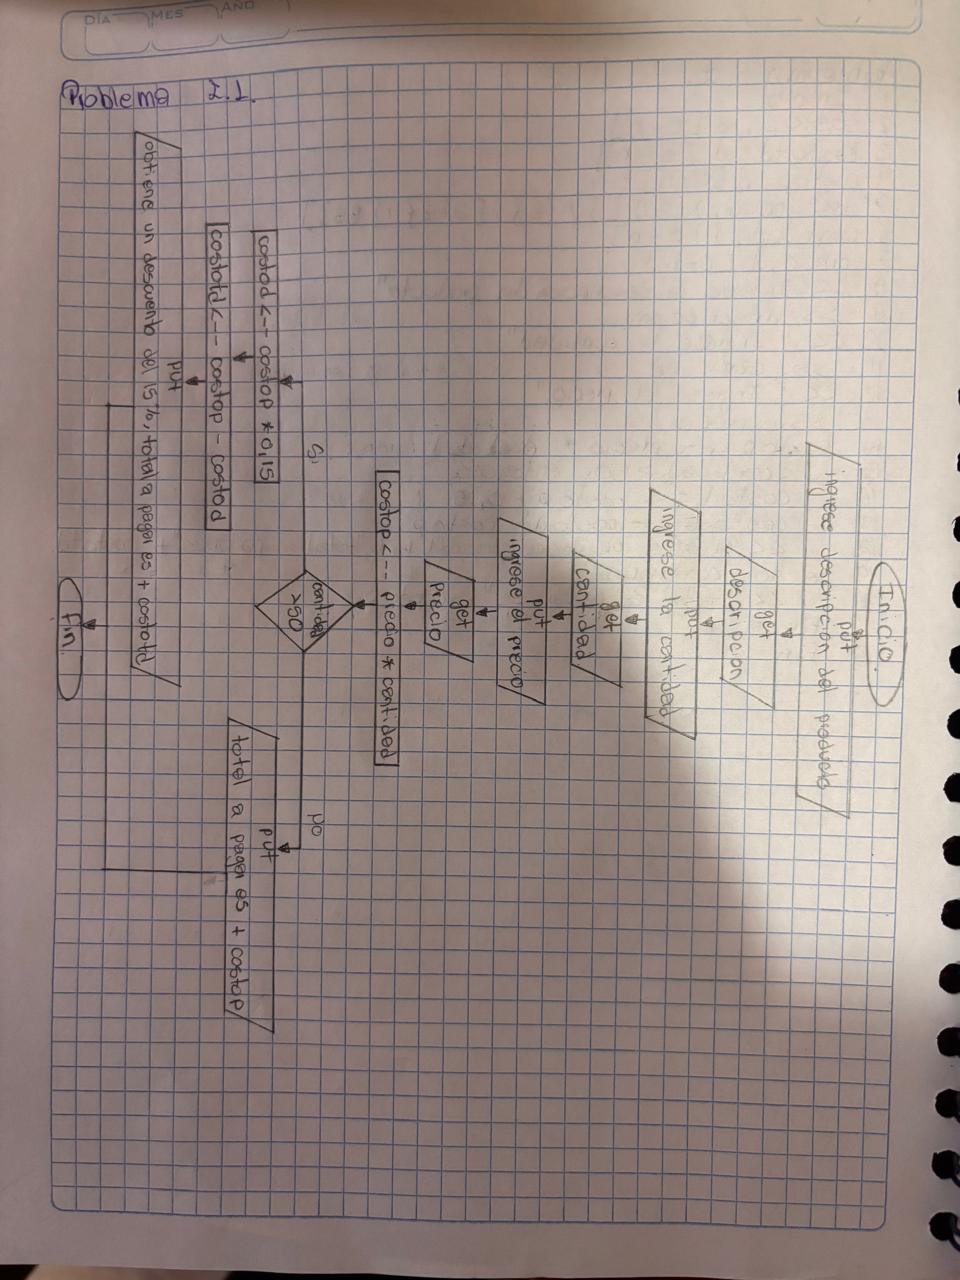 DÍA MES AÑO
Problema 2.1.
Inicio.
put
ingrese descripcion del producto
get
descripcion
put
ingrese la cantidad
get
cantidad
put
ingrese el precio
get
precio
costop <-- precio * cantidad
cantidad
>50
Si
no
costod <-- costop * 0,15
costotd <-- costop - costod
put
obtiene un descuento del 15%, total a pagar es + costotd
put
total a pagar es + costop
fin.